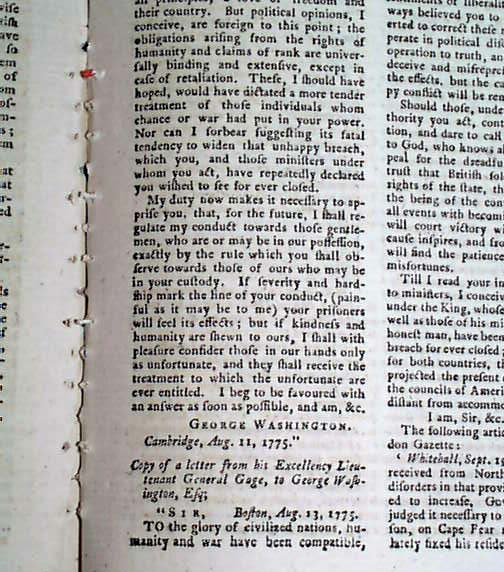 their country. But political opinions, I
conceive, are foreign to this point; the
obligations ariſing from the rights of
humanity and claims of rank are univer-
ſally binding and extenſive, except in
caſe of retaliation. Theſe, I ſhould have
hoped, would have dictated a more tender
treatment of thoſe individuals whom
chance or war had put in your power.
Nor can I forbear ſuggeſting its fatal
tendency to widen that unhappy breach,
which you, and thoſe miniſters under
whom you act, have repeatedly declared
you wiſhed to ſee for ever cloſed.
My duty now makes it neceſſary to ap-
priſe you, that, for the future, I ſhall re-
gulate my conduct towards thoſe gentle-
men, who are or may be in our poſſeſſion,
exactly by the rule which you ſhall ob-
ſerve towards thoſe of ours who may be
in your cuſtody. If ſeverity and hard-
ſhip mark the line of your conduct, (pain-
ful as it may be to me) your priſoners
will feel its effects; but if kindneſs and
humanity are ſhewn to ours, I ſhall with
pleaſure conſider thoſe in our hands only
as unfortunate, and they ſhall receive the
treatment to which the unfortunate are
ever entitled. I beg to be favoured with
an anſwer as ſoon as poſſible, and am, &c.
GEORGE WASHINGTON.
Cambridge, Aug. 11, 1775."
Copy of a letter from his Excellency Lieu-
tenant General Gage, to George Waſh-
ington, Eſq;
"SIR, Boſton, Aug. 13, 1775.
TO the glory of civilized nations, hu-
manity and war have been compatible,
ways believed you to
erted to correct theſe
perate in political diſ
operation to truth, an
deceive and miſrepreſ
the effects, but the ca
py conflict will be ren
Should thoſe, unde
thority you act, cont
tion, and dare to call
to God, who knows al
peal for the dreadfu
truſt that Britiſh ſol
rights of the ſtate, th
the being of the con
all events with becomi
will court victory wi
cauſe inſpires, and fro
will find the patience
misfortunes.
Till I read your in
to miniſters, I concei
under the King, whoſe
well as thoſe of his m
honeſt man, have been
breach for ever cloſed
for both countries, t
projected the preſent
the councils of Ameri
diſtant from accomm
I am, Sir, &c.
The following arti
don Gazette:
' Whitehall, Sept. 1
received from North
diſorders in that provi
ed to increaſe, Gov
judged it neceſſary to
ſon, on Cape Fear
lately fixed his reſide